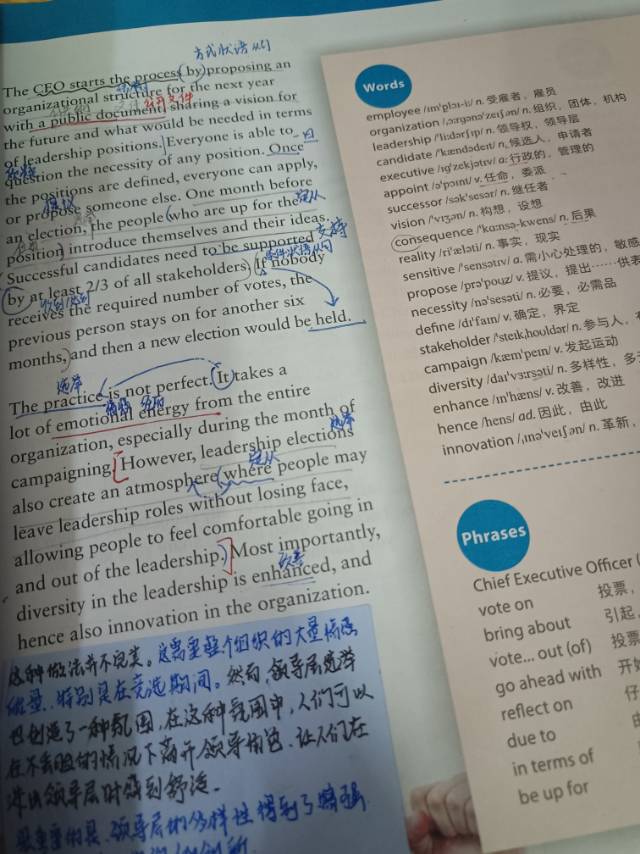 方式状语从句
The CEO starts the process by proposing an
organizational structure for the next year
with a public document, sharing a vision for
the future and what would be needed in terms
of leadership positions. Everyone is able to
question the necessity of any position. Once
the positions are defined, everyone can apply,
or propose someone else. One month before
an election, the people who are up for the
定从
position introduce themselves and their ideas.
Successful candidates need to be supported
支持
by at least 2/3 of all stakeholders. If nobody
条件状语从句
receives the required number of votes, the
previous person stays on for another six
months, and then a new election would be held.
选举
The practice is not perfect. It takes a
lot of emotional energy from the entire
organization, especially during the month of
campaigning. However, leadership elections
选举
定从
also create an atmosphere where people may
leave leadership roles without losing face,
allowing people to feel comfortable going in
and out of the leadership. Most importantly,
diversity in the leadership is enhanced, and
hence also innovation in the organization.
这种做法并不完美。它需要整个组织的大量情感
能量，特别是在竞选期间。然而，领导层选举
也创造了一种氛围，在这种氛围中，人们可以
在不丢脸的情况下离开领导角色，让人们在
进出领导层时感到舒适。
最重要的是，领导层的多样性得到了增强
Words
employee /ɪmˈplɔɪ-iː/ n. 受雇者，雇员
organization /ˌɔːrgənəˈzeɪʃən/ n. 组织，团体，机构
leadership /ˈliːdərʃɪp/ n. 领导权，领导层
candidate /ˈkændədeɪt/ n. 候选人，申请者
executive /ɪgˈzekjətɪv/ a. 行政的，管理的
appoint /əˈpɔɪnt/ v. 任命，委派
successor /səkˈsesər/ n. 继任者
vision /ˈvɪʒən/ n. 构想，设想
consequence /ˈkɑːnsə-kwens/ n. 后果
reality /riˈæləti/ n. 事实，现实
sensitive /ˈsensətɪv/ a. 需小心处理的，敏感
propose /prəˈpoʊz/ v. 提议，提出……供
necessity /nəˈsesəti/ n. 必要，必需品
define /dɪˈfaɪn/ v. 确定，界定
stakeholder /ˈsteɪkˌhoʊldər/ n. 参与人，
campaign /kæmˈpeɪn/ v. 发起运动
diversity /daɪˈvɜːrsəti/ n. 多样性，多
enhance /ɪnˈhæns/ v. 改善，改进
hence /hens/ ad. 因此，由此
innovation /ˌɪnəˈveɪʃən/ n. 革新，
Phrases
Chief Executive Officer (
vote on 投票，
bring about 引起，
vote... out (of) 投票
go ahead with 开始
reflect on 仔
due to 由
in terms of
be up for